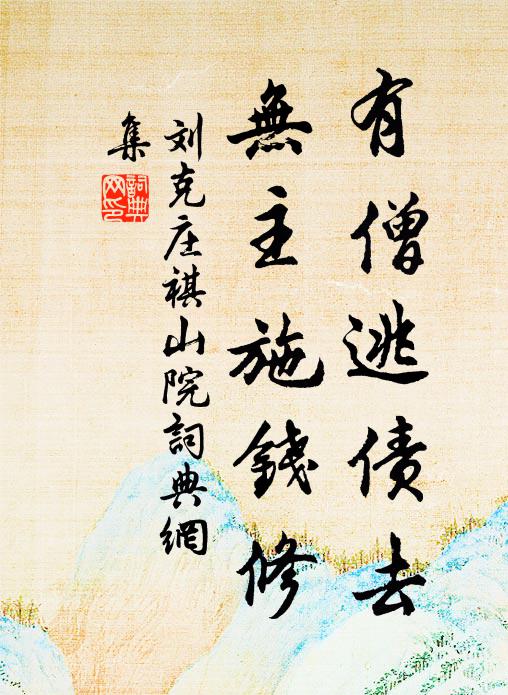 有僧逃债去
無主施錢修
刘克庄祺山院詞典網
集
詞典网印